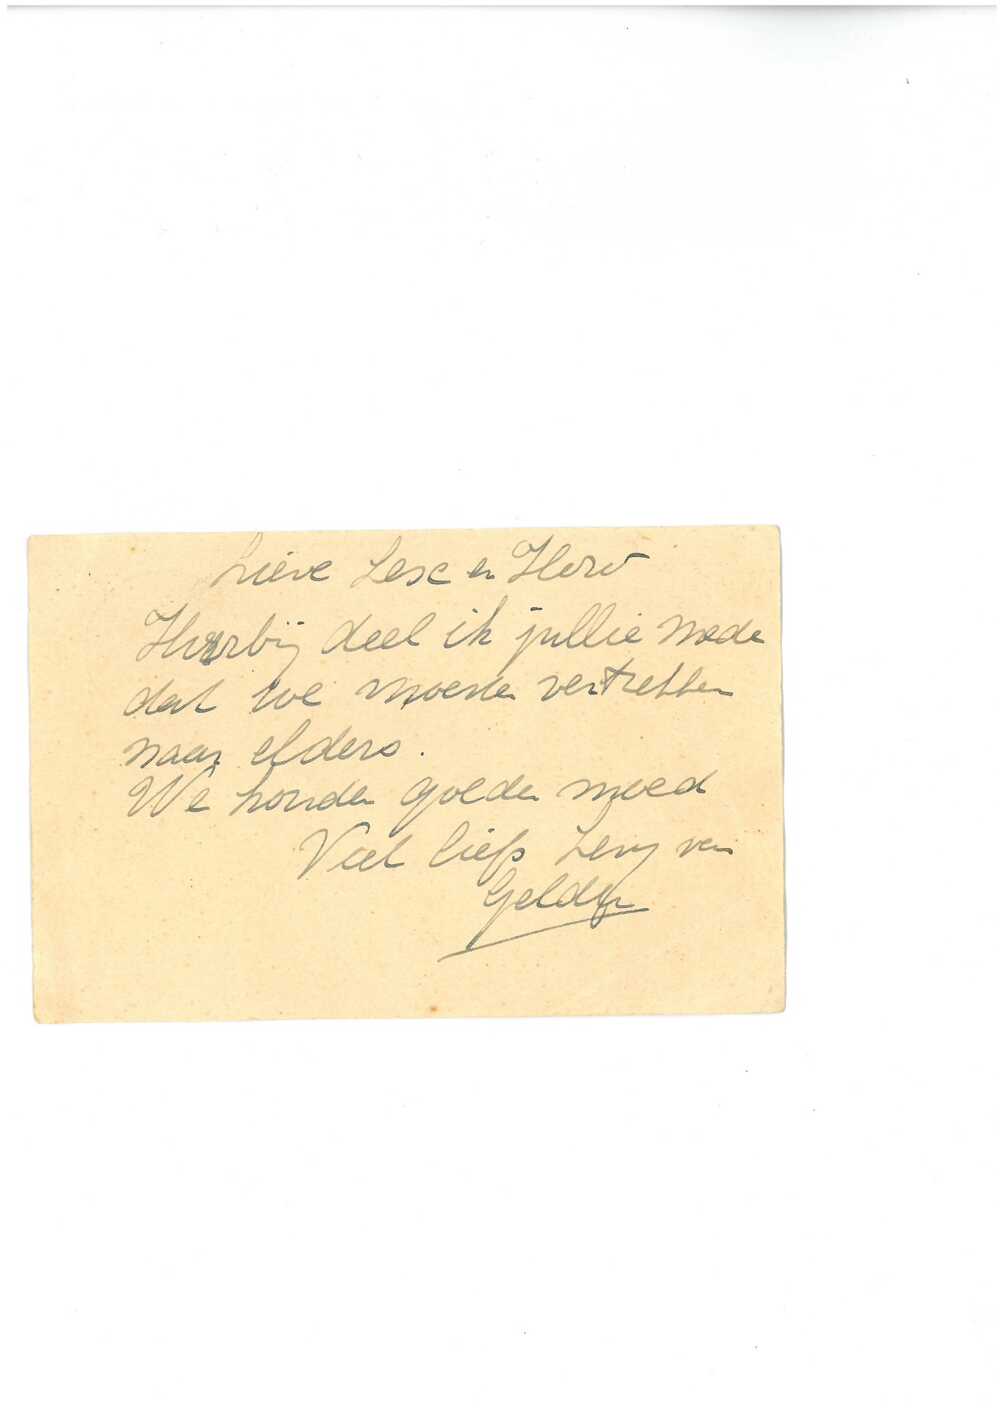 Lieve Lese en Herv
Hierbij deel ik jullie mede
dat we moeten vertrekken
naar elders.
We houden goeden moed
Veel liefs Levy van
Gelder